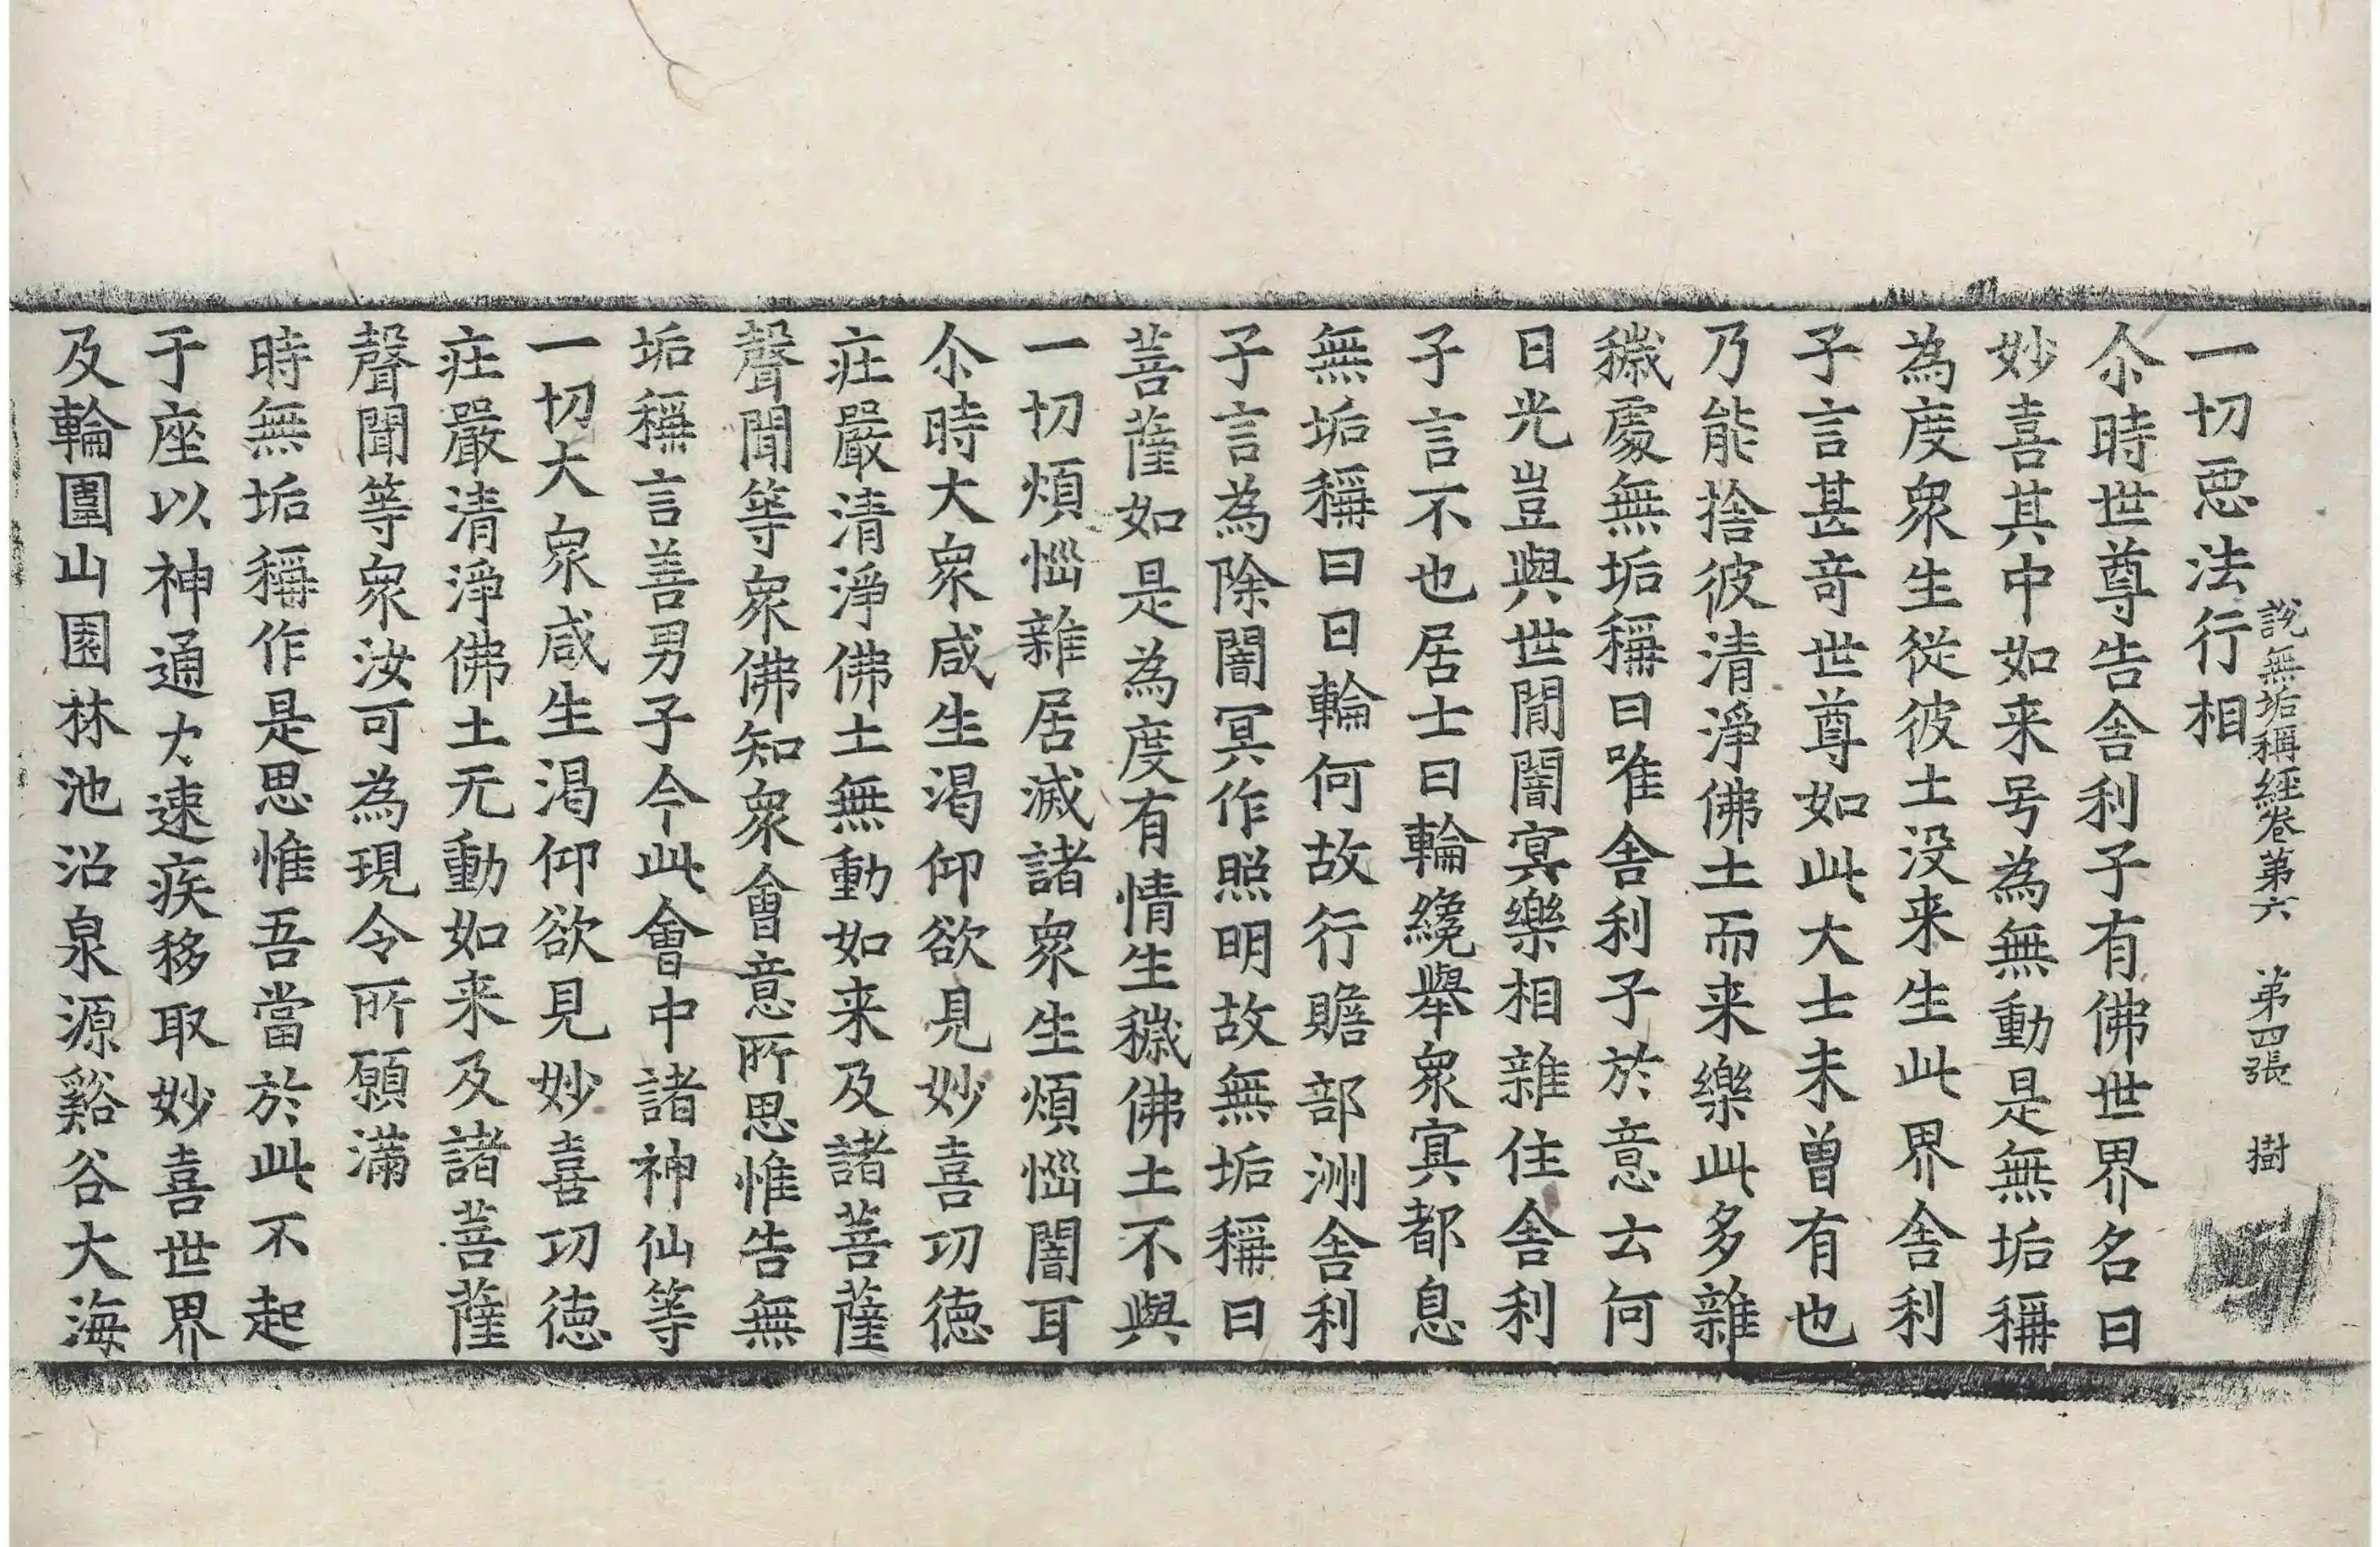 說無垢稱經卷第六　弟四張　樹
一切惡法行相
尒時世尊告舍利子有佛世界名曰
妙喜其中如来号為無動是無垢稱
為度衆生從彼土没来生此界舍利
子言甚竒世尊如此大士未曽有也
乃能捨彼清淨佛土而来樂此多雜
穢處無垢稱曰唯舍利子於意云何
日光豈與世閒闇冥樂相雜住舍利
子言不也居士日輪纔舉衆冥都息
無垢稱曰日輪何故行贍部洲舍利
子言為除闇冥作照明故無垢稱曰
菩薩如是為度有情生穢佛土不與
一切煩惱雜居滅諸衆生煩惱闇耳
尒時大衆咸生渴仰欲見妙喜功德
莊嚴清淨佛土無動如来及諸菩薩
聲聞等衆佛知衆會意所思惟告無
垢稱言善男子今此會中諸神仙等
一切大衆咸生渴仰欲見妙喜功德
莊嚴清淨佛土无動如来及諸菩薩
聲聞等衆汝可為現令所願滿
時無垢稱作是思惟吾當於此不起
于座以神通力速疾移取妙喜世界
及輪圍山園林池沼泉源谿谷大海